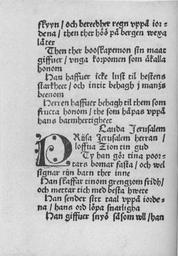 skyyn / och bereedher regn vppå ior=
dena / then ther höö på bergen wexa
läter
Then ther booskapomen sin maat
giffuer / vnga korpomen som åkalla
honom
Han haffuer icke lust til hestens
starkheet / och intit behagh j mansz
beenom
Herren haffuer behagh til them som
fructa honom / the som håpas vppå
hans barmhertigheet
Lauda Jerusalem
PRijsa Jerusalem herran /
loffua Zion tin gud
Ty han gör tina poor=
tars bomar fasta / och wel
signar tijn barn ther inne
Han skaffar tinom grenszom fridh /
och mettar tich med besta hwete
Han sender sitt taal vppå iorde=
na / hans ord löpa snarligha
Han giffuer snyö såsom vll / han